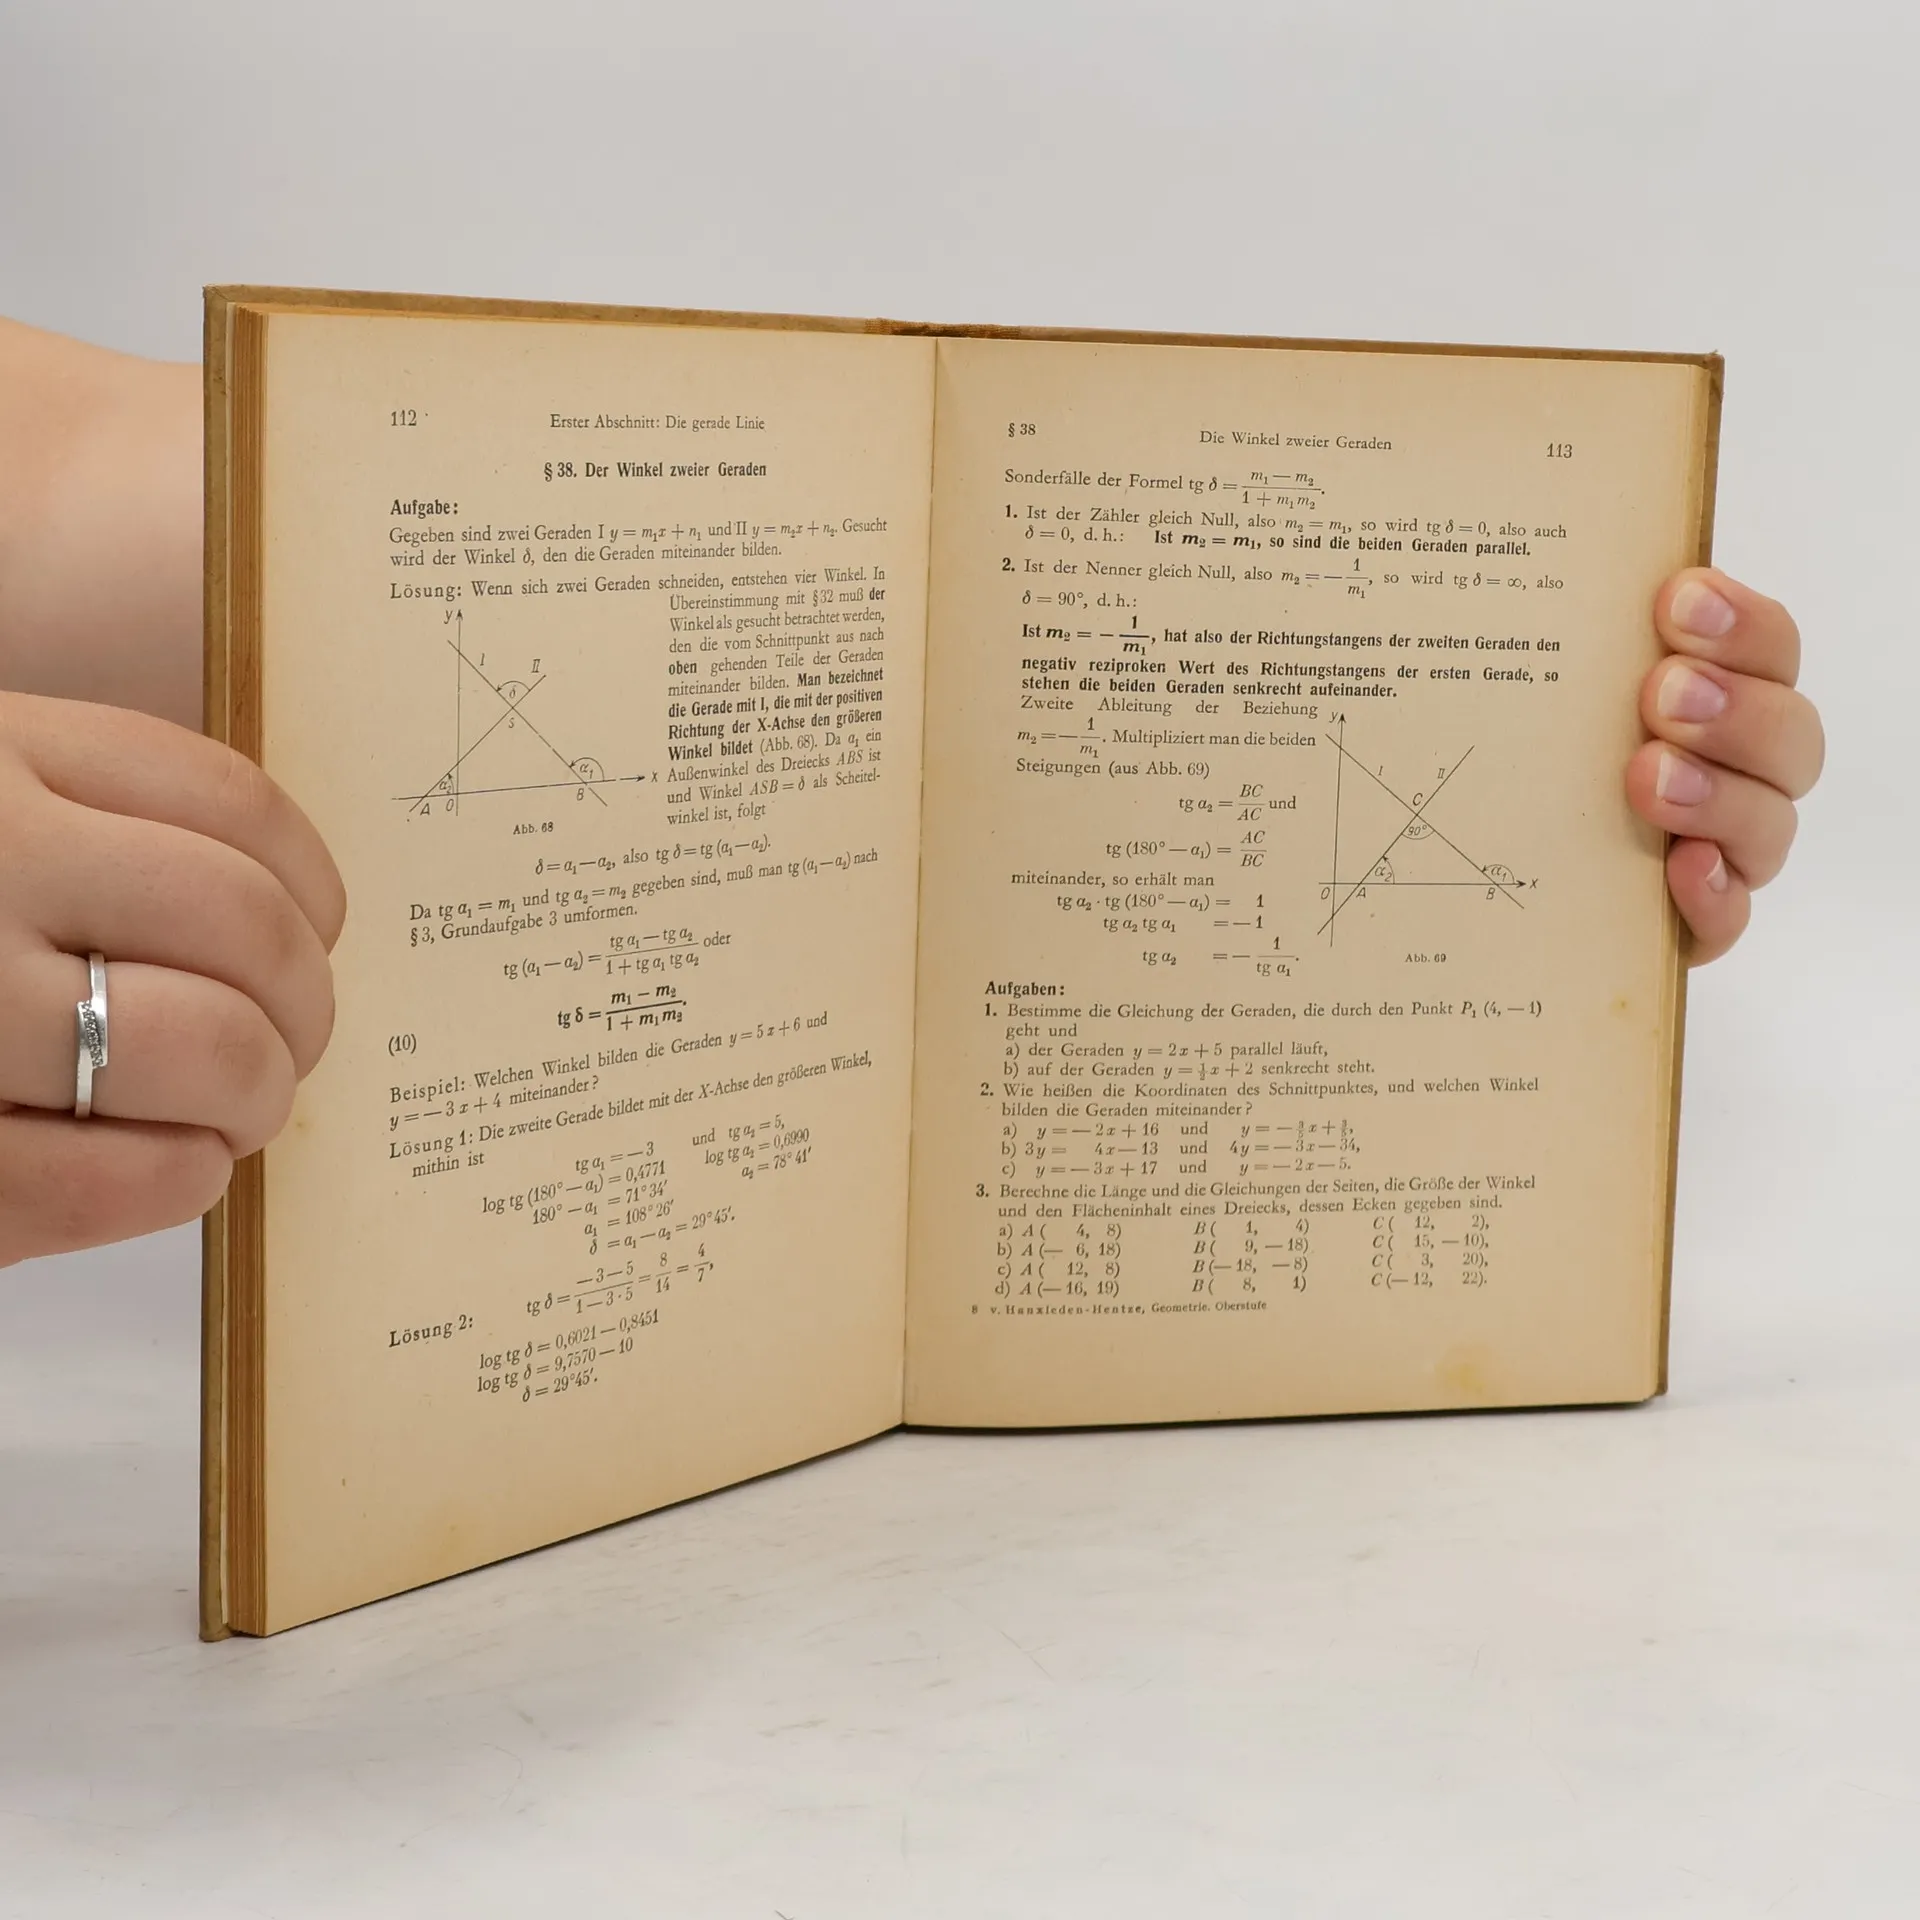 112
Erster Abschnitt: Die gerade Linie
§ 38. Der Winkel zweier Geraden
Aufgabe:
Gegeben sind zwei Geraden I y = m₁x + n₁ und II y = m₂x + n₂. Gesucht
wird der Winkel δ, den die Geraden miteinander bilden.
Lösung: Wenn sich zwei Geraden schneiden, entstehen vier Winkel. In
Übereinstimmung mit § 32 muß der
Winkel als gesucht betrachtet werden,
den die vom Schnittpunkt aus nach
oben gehenden Teile der Geraden
miteinander bilden. Man bezeichnet
die Gerade mit I, die mit der positiven
Richtung der X-Achse den größeren
Winkel bildet (Abb. 68). Da α₁ ein
Außenwinkel des Dreiecks ABS ist
und Winkel ASB = δ als Scheitel-
winkel ist, folgt
y
I
II
δ
S
α₂
α₁
x
A
O
B
Abb. 68
δ = α₁ — α₂, also tg δ = tg (α₁ — α₂).
Da tg α₁ = m₁ und tg α₂ = m₂ gegeben sind, muß man tg (α₁ — α₂) nach
§ 3, Grundaufgabe 3 umformen.
tg (α₁ — α₂) = (tg α₁ — tg α₂) / (1 + tg α₁ tg α₂) oder
(10) tg δ = (m₁ — m₂) / (1 + m₁ m₂).
Beispiel: Welchen Winkel bilden die Geraden y = 5 x + 6 und
y = — 3 x + 4 miteinander?
Lösung 1: Die zweite Gerade bildet mit der X-Achse den größeren Winkel,
mithin ist
tg α₁ = — 3 und tg α₂ = 5,
log tg (180° — α₁) = 0,4771 log tg α₂ = 0,6990
180° — α₁ = 71° 34′ α₂ = 78° 41′
α₁ = 108° 26′
δ = α₁ — α₂ = 29° 45′.
Lösung 2: tg δ = (— 3 — 5) / (1 — 3 · 5) = 8/14 = 4/7,
log tg δ = 0,6021 — 0,8451
log tg δ = 9,7570 — 10
δ = 29° 45′.
§ 38
Die Winkel zweier Geraden
113
Sonderfälle der Formel tg δ = (m₁ — m₂) / (1 + m₁ m₂).
1. Ist der Zähler gleich Null, also m₂ = m₁, so wird tg δ = 0, also auch
δ = 0, d. h.: Ist m₂ = m₁, so sind die beiden Geraden parallel.
2. Ist der Nenner gleich Null, also m₂ = — 1/m₁, so wird tg δ = ∞, also
δ = 90°, d. h.:
Ist m₂ = — 1/m₁, hat also der Richtungstangens der zweiten Geraden den
negativ reziproken Wert des Richtungstangens der ersten Gerade, so
stehen die beiden Geraden senkrecht aufeinander.
Zweite Ableitung der Beziehung
m₂ = — 1/m₁. Multipliziert man die beiden
Steigungen (aus Abb. 69)
tg α₂ = BC/AC und
tg (180° — α₁) = AC/BC
miteinander, so erhält man
tg α₂ · tg (180° — α₁) = 1
tg α₂ tg α₁ = — 1
tg α₂ = — 1/tg α₁.
y
I
II
C
90°
α₂
α₁
x
O
A
B
Abb. 69
Aufgaben:
1. Bestimme die Gleichung der Geraden, die durch den Punkt P₁ (4, — 1)
geht und
a) der Geraden y = 2 x + 5 parallel läuft,
b) auf der Geraden y = ½ x + 2 senkrecht steht.
2. Wie heißen die Koordinaten des Schnittpunktes, und welchen Winkel
bilden die Geraden miteinander?
a) y = — 2 x + 16 und y = —
b) 3 y = 4 x — 13 und 4 y = — 3 x — 34,
c) y = — 3 x + 17 und y = — 2 x — 5.
3. Berechne die Länge und die Gleichungen der Seiten, die Größe der Winkel
und den Flächeninhalt eines Dreiecks, dessen Ecken gegeben sind.
a) A ( 4, 8) B ( 1, 4) C ( 12, 2),
b) A (— 6, 18) B ( 9, — 18) C ( 15, — 10),
c) A ( 12, 8) B (— 18, — 8) C ( 3, 20),
d) A (— 16, 19) B ( 8, 1) C (— 12, 22).
8 v. Hanxleden-Hentze, Geometrie. Oberstufe